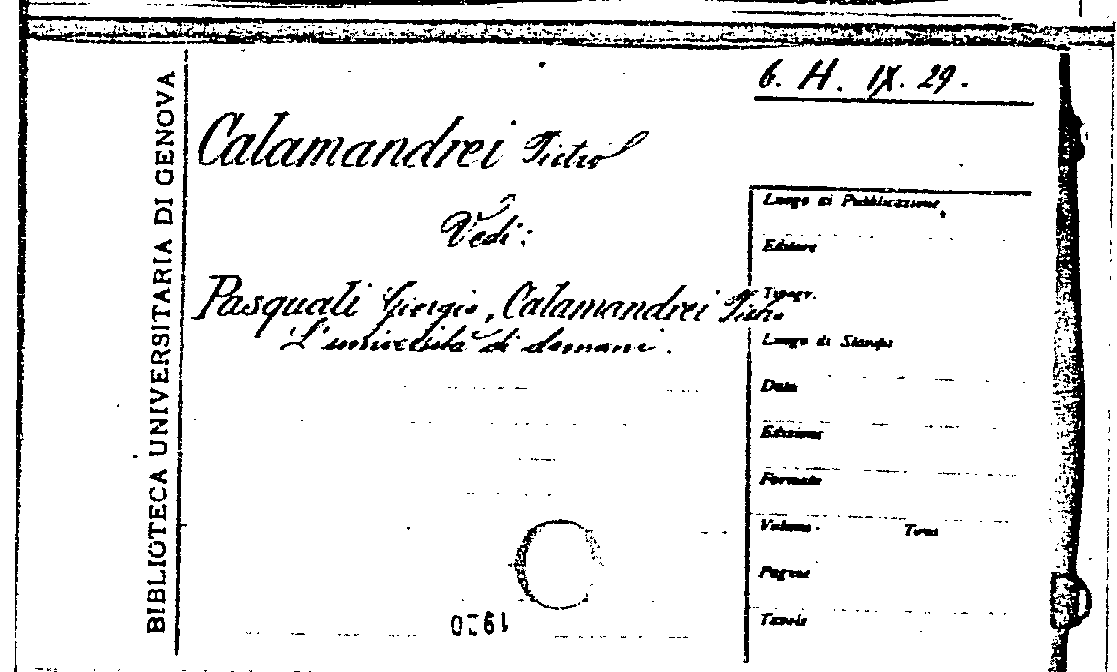 BIBLIOTECA UNIVERSITARIA DI GENOVA
6. H. IX. 29.
Calamandrei Pietro
Vedi:
Pasquali Giorgio, Calamandrei Pietro
L'università di domani.
Luogo di Pubblicazione
Editore
Tipogr.
Luogo di Stampa
Data
Edizione
Formato
Volume Tomi
Pagine
Tavole